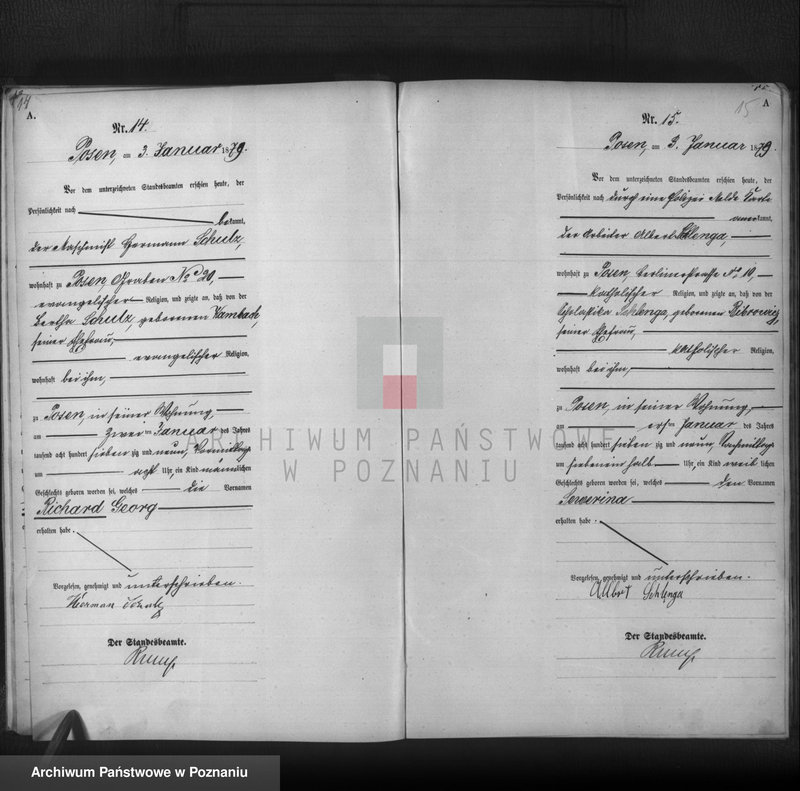 14
A.
Nr. 14.
Posen, am 3. Januar 1879.
Vor dem unterzeichneten Standesbeamten erschien heute, der
Persönlichkeit nach
bekannt,
der Maschinist Hermann Schulz,
wohnhaft zu Posen, Graben No 20,
evangelischer Religion, und zeigte an, daß von der
Bertha Schulz, geborenen Kambach,
seiner Ehefrau,
evangelischer Religion,
wohnhaft bei ihm,
zu Posen, in seiner Wohnung,
am zwei ten Januar des Jahres
tausend acht hundert sieben zig und neun, Vormittags
um acht Uhr, ein Kind männlichen
Geschlechts geboren worden sei, welches die Vornamen
Richard Georg
erhalten habe.
Vorgelesen, genehmigt und unterschrieben.
Herman Schulz
Der Standesbeamte.
15
A
Nr. 15.
Posen, am 3. Januar 1879.
Vor dem unterzeichneten Standesbeamten erschien heute, der
Persönlichkeit nach durch eine Polizei Melde Karte
anerkannt,
der Arbeiter Albert Schlenga,
wohnhaft zu Posen, Berlinerstrasse No 10,
katholischer Religion, und zeigte an, daß von der
Scholastika Schlenga, geborenen
seiner Ehefrau,
katholischer Religion,
wohnhaft bei ihm,
zu Posen, in seiner Wohnung,
am ersten Januar des Jahres
tausend acht hundert sieben zig und neun, Nachmittags
um siebeneinhalb Uhr, ein Kind weib lichen
Geschlechts geboren worden sei, welches den Vornamen
Severina
erhalten habe.
Vorgelesen, genehmigt und unterschrieben.
Albert Schlenga
Der Standesbeamte.
ARCHIWUM PAŃSTWOWE
W POZNANIU
Archiwum Państwowe w Poznaniu